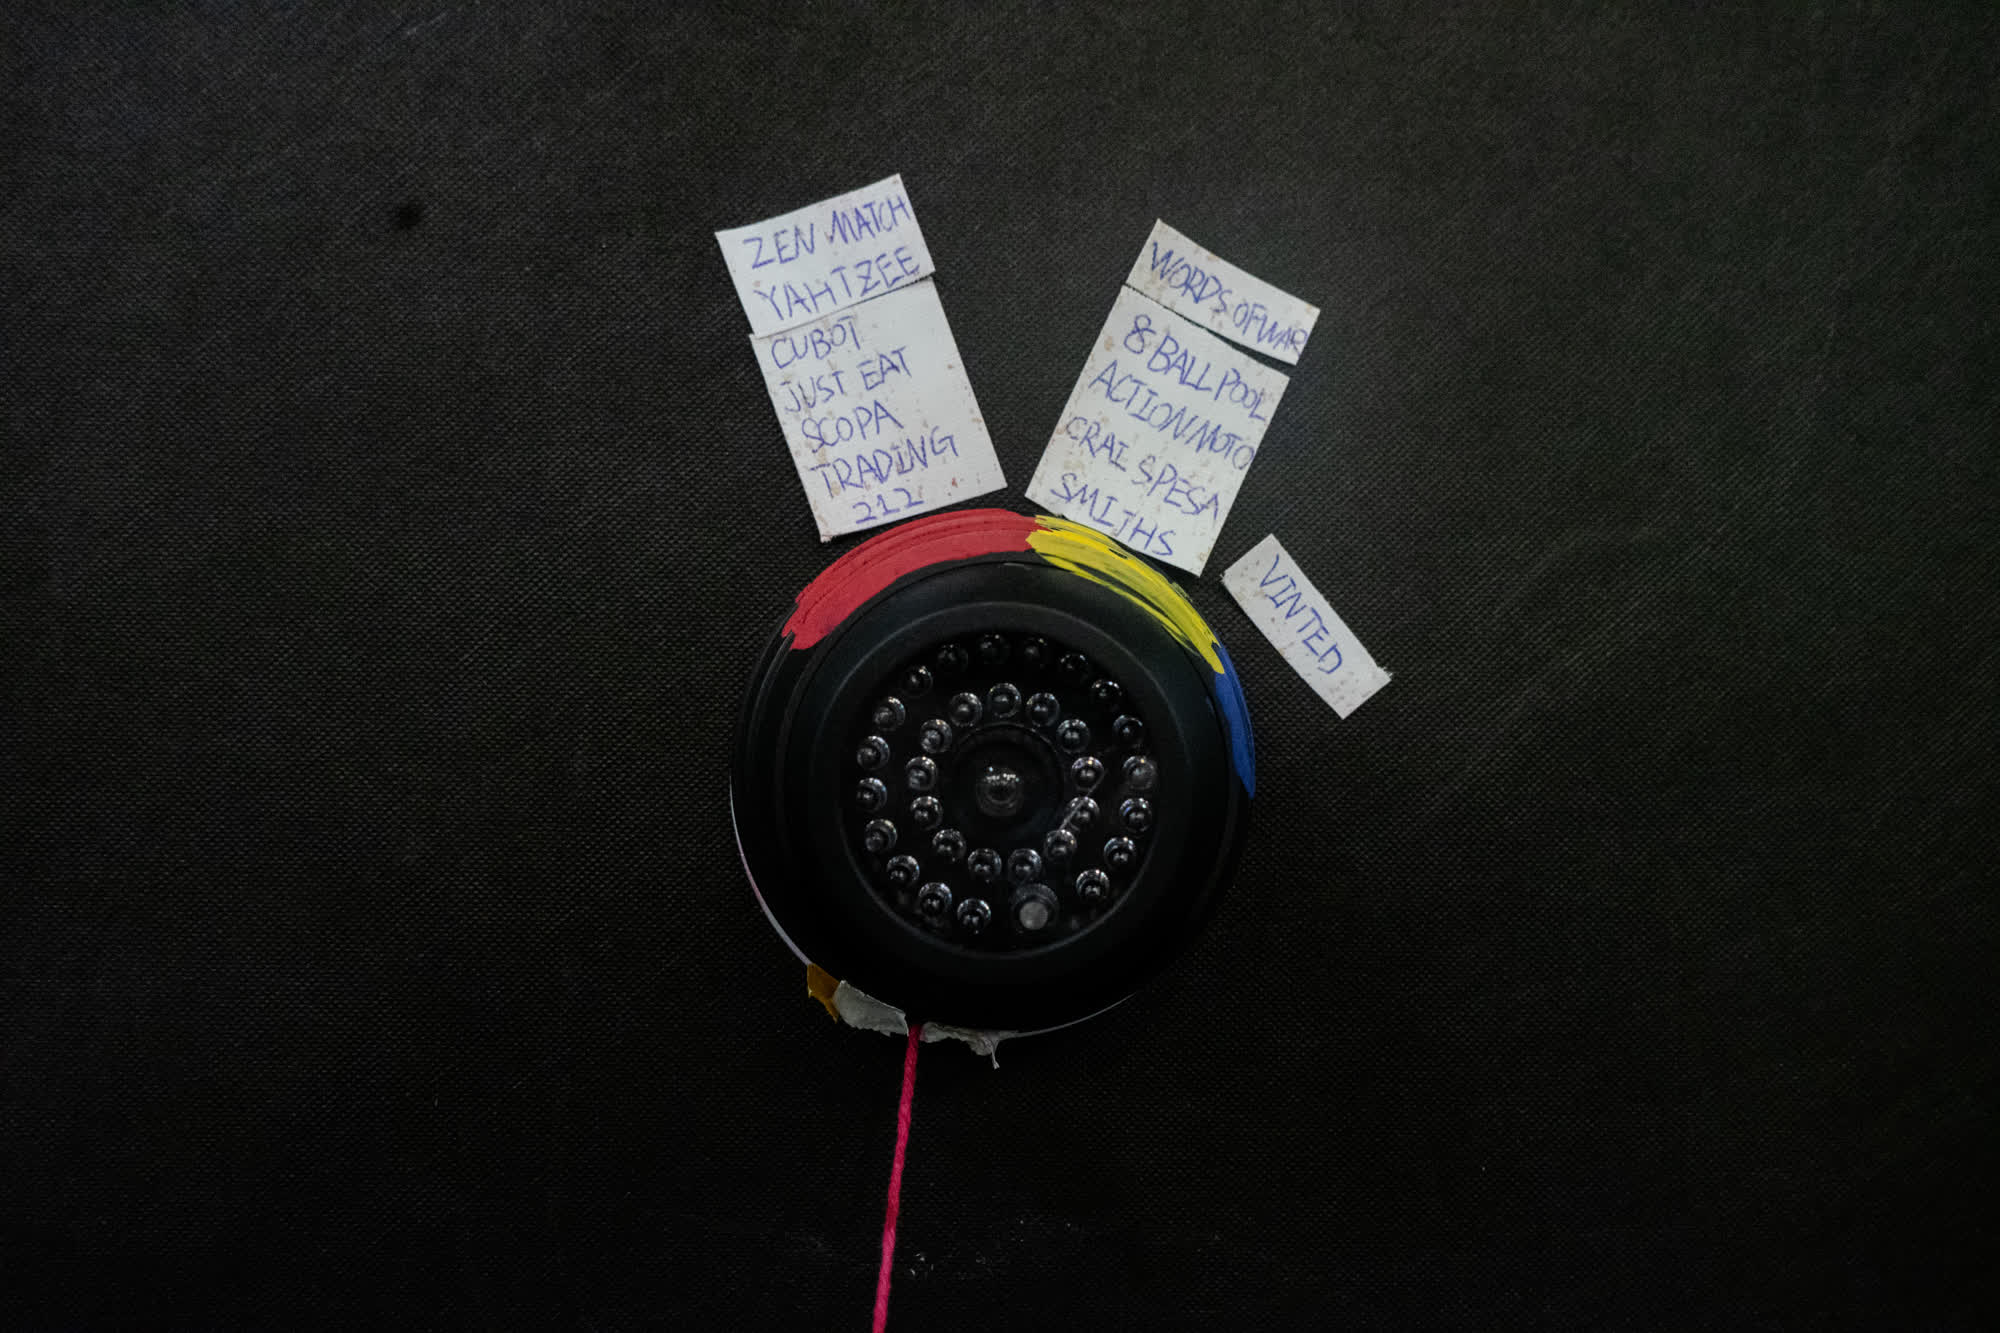 ZEN MATCH
YAHTZEE
CUBOT
JUST EAT
SCOPA
TRADING
212
WORDS OF WAR
8 BALL POOL
ACTION MOTO
CRAI SPESA
SMIJHS
VINTED